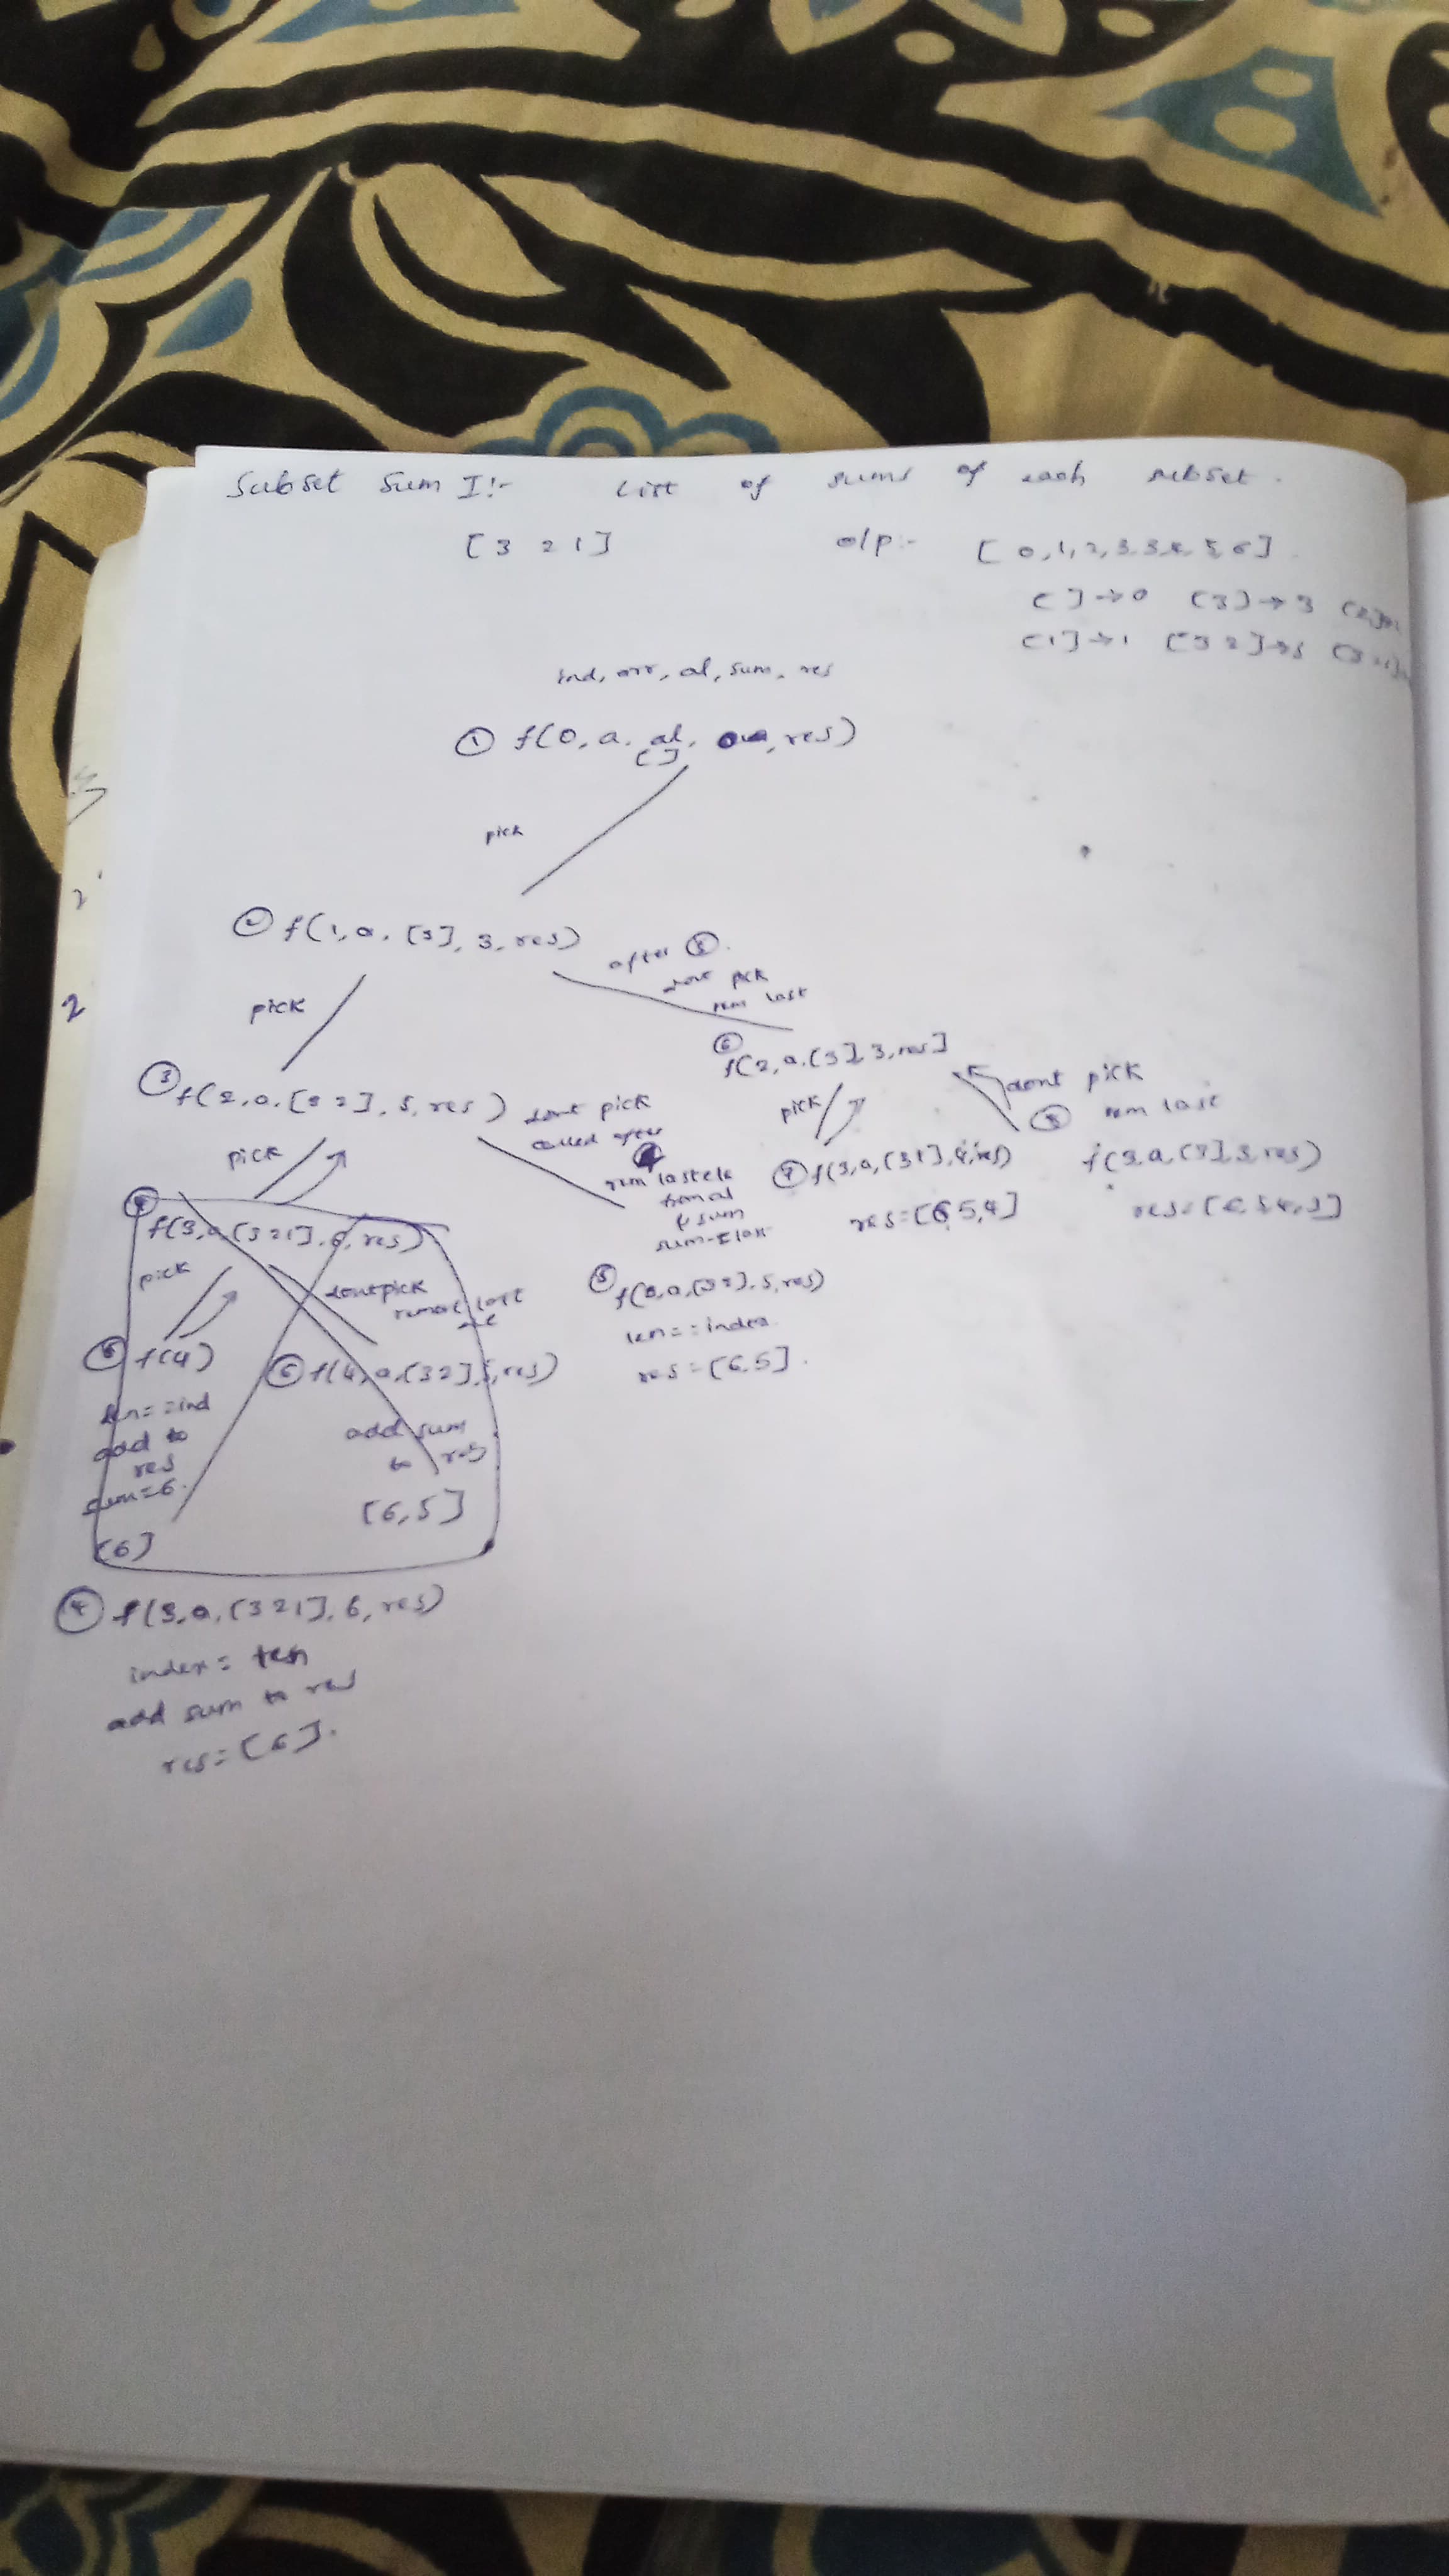 Subset Sum I:- List of sums of each subset.
[3 2 1] o/p:- [0,1,2,3,3,4,5,6].
[]→0 [3]→3
[1]→1 [3 2]→5
ind, arr, al, sum, res
① f(0, a, al, res)
[]
pick
② f(1, a, [3], 3, res)
after ⑤.
dont pick
rem last
pick
⑥
f(2, a, [3], 3, res]
③ f(2, a, [3 2], 5, res)
dont pick
called after
④
rem last ele
from al
& sum
pick
pick
dont pick
rem last
⑦ f(3, a, [3 1], 4, res)
res=[6 5,4]
⑧
f(3, a, [3], 3, res)
res=[6,5,4,3]
④
f(3, a, [3 2 1], 6, res)
pick
dont pick
⑤ f(4)
len==ind
add to
res
sum=6.
[6]
⑥ f(4, a, [3 2], 5, res)
add sum
to res
[6,5]
⑤ f(3, a, [3 2], 5, res)
len==index
res=[6,5].
④ f(3, a, [3 2 1], 6, res)
index= len
add sum to res
res=[6].
2